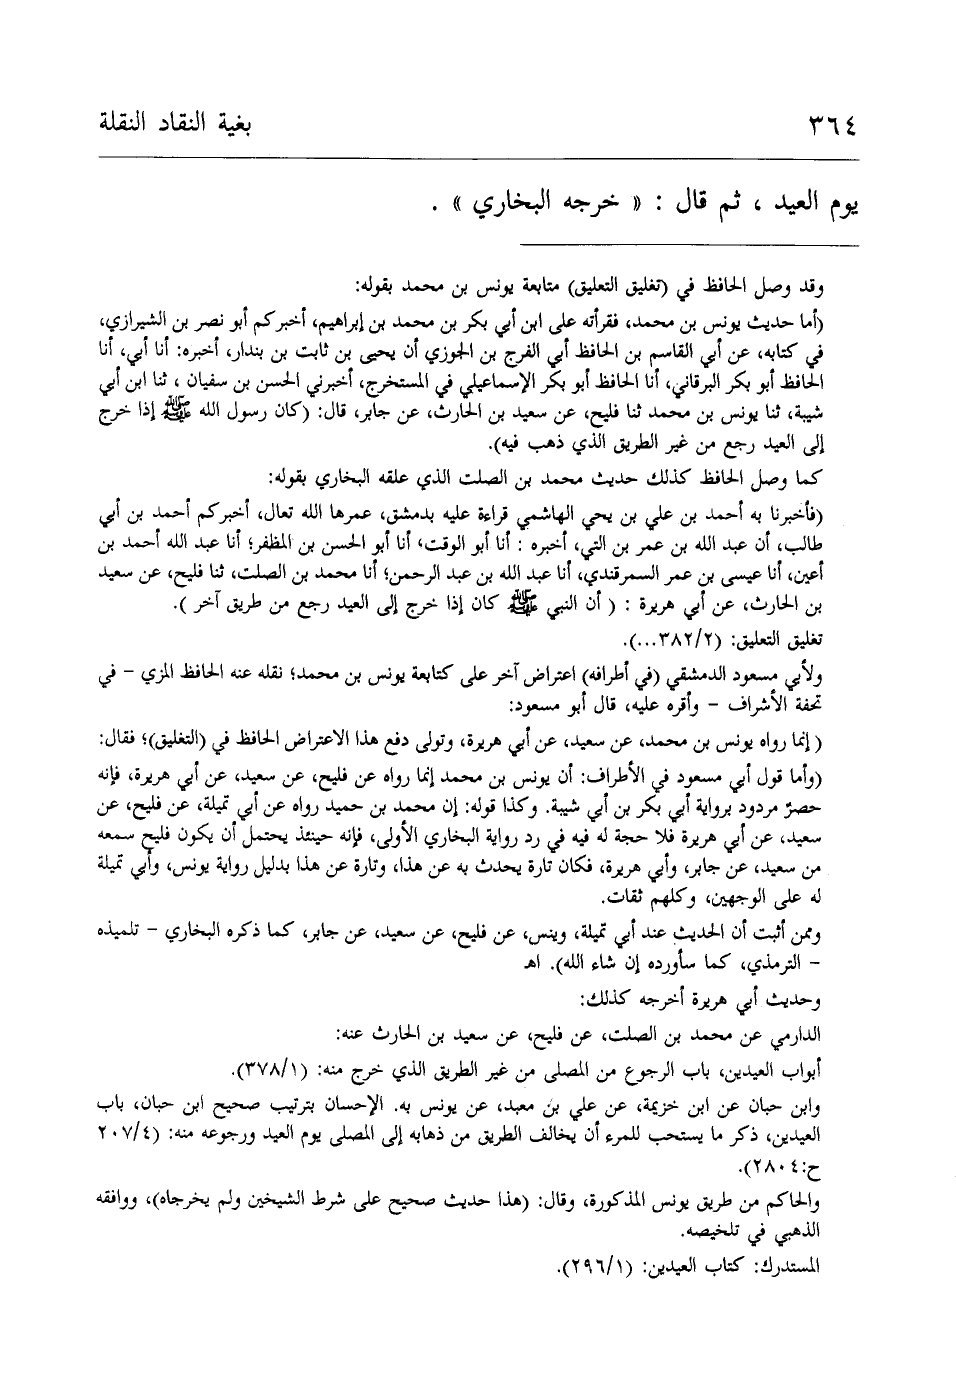 ٣٦٤ بغية النقاد النقلة
يوم العيد ، ثم قال : « خرجه البخاري » .
وقد وصل الحافظ في (تغليق التعليق) متابعة يونس بن محمد بقوله:
(أما حديث يونس بن محمد، فقرأته على ابن أبي بكر بن محمد بن إبراهيم، أخبركم أبو نصر بن الشيرازي،
في كتابه، عن أبي القاسم بن الحافظ أبي الفرج بن الجوزي أن يحيى بن ثابت بن بندار، أخبره: أنا أبي، أنا
الحافظ أبو بكر البرقاني، أنا الحافظ أبو بكر الإسماعيلي في المستخرج، أخبرني الحسن بن سفيان ، ثنا ابن أبي
شيبة، ثنا يونس بن محمد ثنا فليح، عن سعيد بن الحارث، عن جابر، قال: (كان رسول الله ﷺ إذا خرج
إلى العيد رجع من غير الطريق الذي ذهب فيه).
كما وصل الحافظ كذلك حديث محمد بن الصلت الذي علقه البخاري بقوله:
(فأخبرنا به أحمد بن علي بن يحي الهاشمي قراءة عليه بدمشق، عمرها الله تعال، أخبركم أحمد بن أبي
طالب، أن عبد الله بن عمر بن التي، أخبره : أنا أبو الوقت، أنا أبو الحسن بن المظفر؛ أنا عبد الله أحمد بن
أعين، أنا عيسى بن عمر السمرقندي، أنا عبد الله بن عبد الرحمن؛ أنا محمد بن الصلت، ثنا فليح، عن سعيد
بن الحارث، عن أبي هريرة : ( أن النبي ﷺ كان إذا خرج إلى العيد رجع من طريق آخر ).
تغليق التعليق: (٣٨٢/٢...).
ولأبي مسعود الدمشقي (في أطرافه) اعتراض آخر على كتابعة يونس بن محمد؛ نقله عنه الحافظ المزي – في
تحفة الأشراف – وأقره عليه، قال أبو مسعود:
( إنما رواه يونس بن محمد، عن سعيد، عن أبي هريرة، وتولى دفع هذا الاعتراض الحافظ في (التغليق)؛ فقال:
(وأما قول أبي مسعود في الأطراف: أن يونس بن محمد إنما رواه عن فليح، عن سعيد، عن أبي هريرة، فإنه
حصرٌ مردود برواية أبي بكر بن أبي شيبة. وكذا قوله: إن محمد بن حميد رواه عن أبي تميلة، عن فليح، عن
سعيد، عن أبي هريرة فلا حجة له فيه في رد رواية البخاري الأولى، فإنه حينئذ يحتمل أن يكون فليح سمعه
من سعيد، عن جابر، وأبي هريرة، فكان تارة يحدث به عن هذا، وتارة عن هذا بدليل رواية يونس، وأبي تميلة
له على الوجهين، وكلهم ثقات.
وممن أثبت أن الحديث عند أبي تميلة، وينس، عن فليح، عن سعيد، عن جابر، كما ذكره البخاري – تلميذه
– الترمذي، كما سأورده إن شاء الله). اهـ
وحديث أبي هريرة أخرجه كذلك:
الدارمي عن محمد بن الصلت، عن فليح، عن سعيد بن الحارث عنه:
أبواب العيدين، باب الرجوع من المصلى من غير الطريق الذي خرج منه: (٣٧٨/١).
وابن حبان عن ابن خزيمة، عن علي بن معبد، عن يونس به. الإحسان بترتيب صحيح ابن حبان، باب
العيدين، ذكر ما يستحب للمرء أن يخالف الطريق من ذهابه إلى المصلى يوم العيد ورجوعه منه: (٢٠٧/٤
ح:٢٨٠٤).
والحاكم من طريق يونس المذكورة، وقال: (هذا حديث صحيح على شرط الشيخين ولم يخرجاه)، ووافقه
الذهبي في تلخيصه.
المستدرك: كتاب العيدين: (٢٩٦/١).